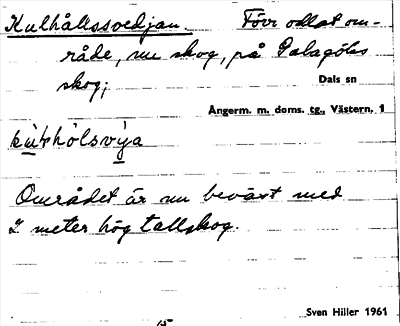 Kulhålssvedjan. Förr odlat om-
råde, nu skog, på Dalagöls
skog;
Dals sn
Ångerm. m. doms. tg., Västern, 1
Området är nu beväxt med
2 meter hög tallskog.
Sven Hiller 1961
15